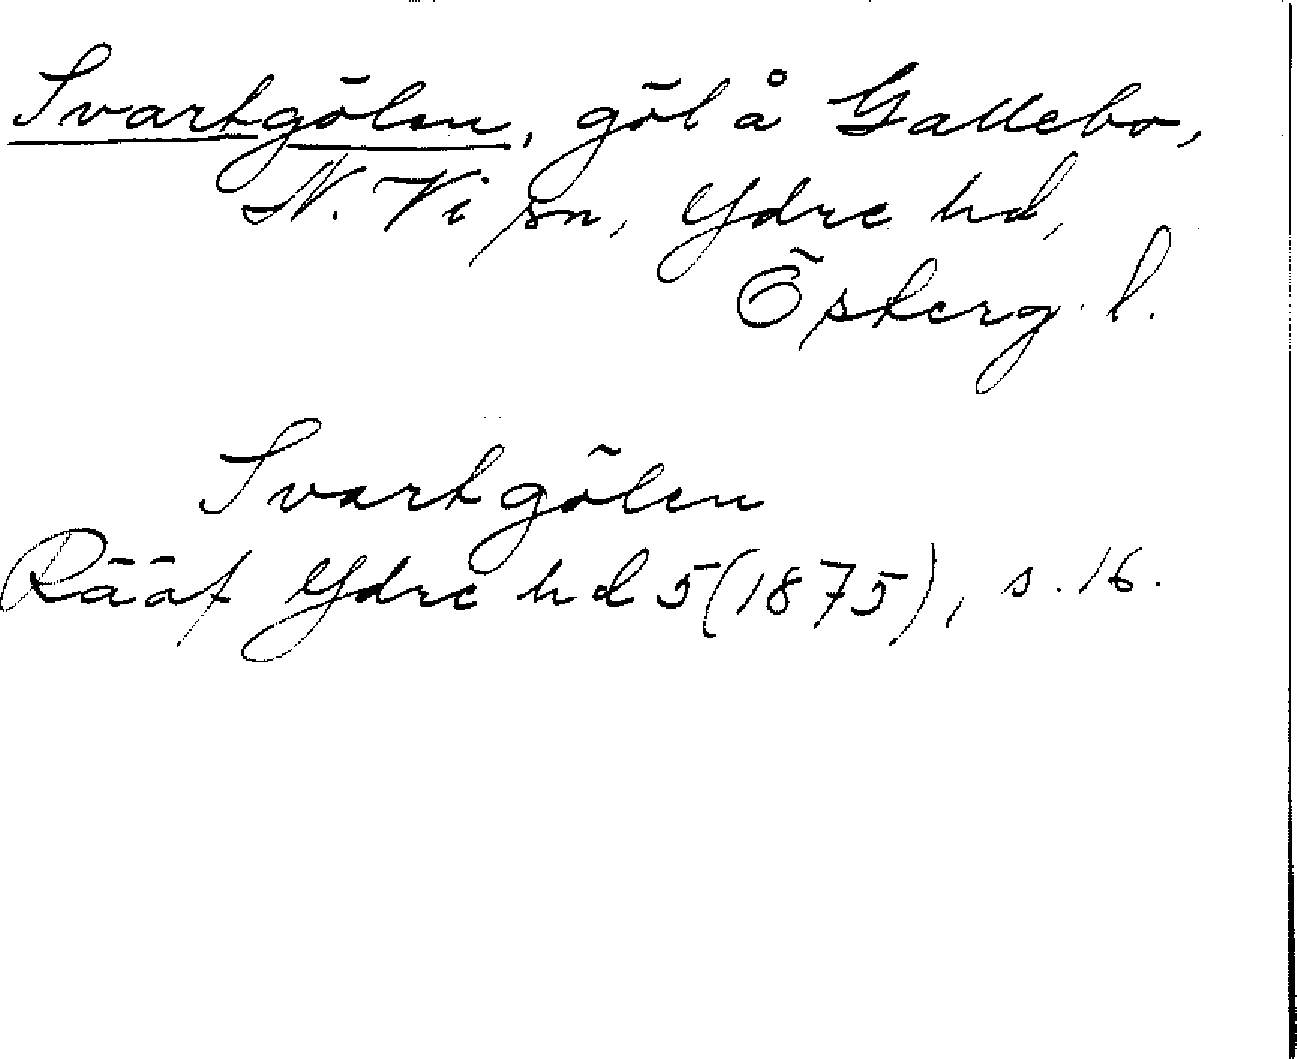 Svartgölen, göl å Gallebo,
N. Vi sn, Ydre hd,
Österg. l.
Svartgölen
Rääf Ydre hd 5 (1875), s. 16.